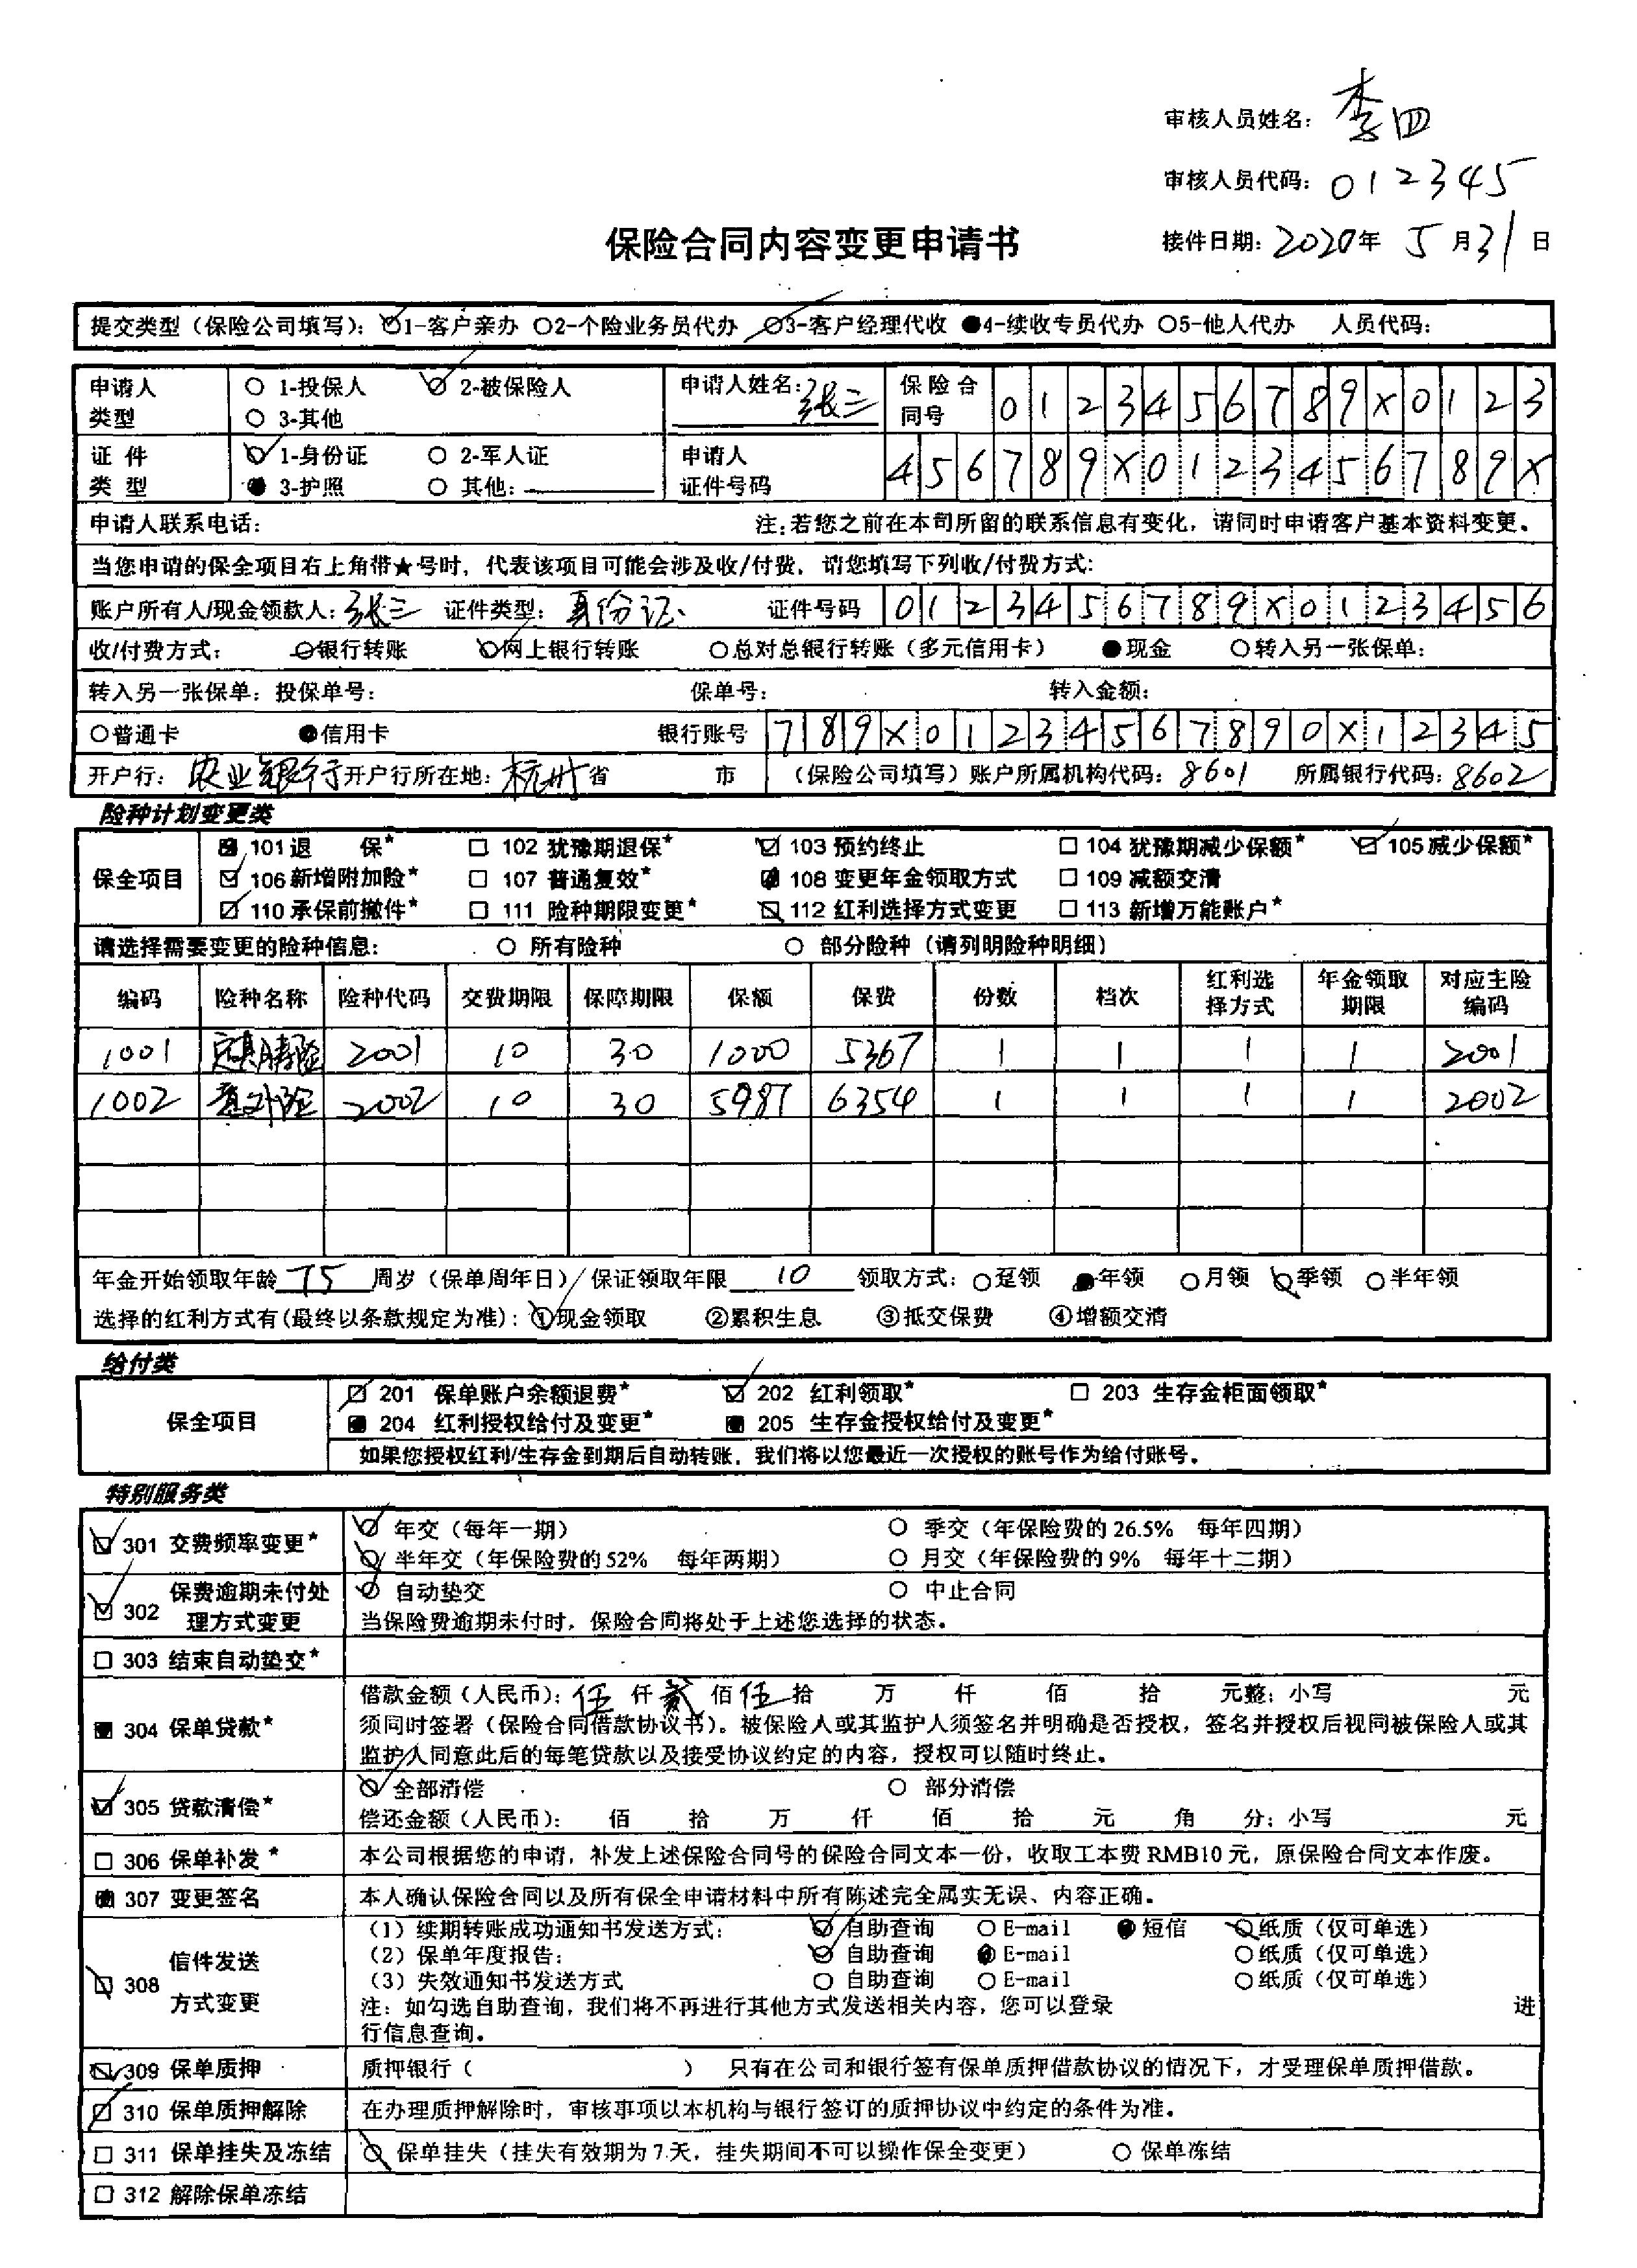 审核人员姓名：李四
审核人员代码：012345
保险合同内容变更申请书
接件日期：2020年 5月31日
提交类型（保险公司填写）：☑1-客户亲办 ○2-个险业务员代办 ☑3-客户经理代收 ●4-续收专员代办 ○5-他人代办 人员代码：
申请人类型 ○ 1-投保人 ☑ 2-被保险人 ○ 3-其他 申请人姓名：张三 保险合同号 0123456789X0123
证件类型 ☑ 1-身份证 ○ 2-军人证 ● 3-护照 ○ 其他： 申请人证件号码 456789X0123456789X
申请人联系电话： 注：若您之前在本司所留的联系信息有变化，请同时申请客户基本资料变更。
当您申请的保全项目右上角带★号时，代表该项目可能会涉及收/付费，请您填写下列收/付费方式：
账户所有人/现金领款人：张三 证件类型：身份证 证件号码 0123456789X0123456
收/付费方式： ○银行转账 ☑网上银行转账 ○总对总银行转账（多元信用卡） ●现金 ○转入另一张保单：
转入另一张保单：投保单号： 保单号： 转入金额：
○普通卡 ●信用卡 银行账号 789X01234567890X12345
开户行：农业银行 开户行所在地：杭州省 市 （保险公司填写）账户所属机构代码：8601 所属银行代码：8602
险种计划变更类
保全项目
■ 101 退 保★ □ 102 犹豫期退保★ ☑ 103 预约终止 □ 104 犹豫期减少保额★ ☑ 105 减少保额★
☑ 106 新增附加险★ □ 107 普通复效★ ■ 108 变更年金领取方式 □ 109 减额交清
☑ 110 承保前撤件★ □ 111 险种期限变更★ ☑ 112 红利选择方式变更 □ 113 新增万能账户★
请选择需要变更的险种信息： ○ 所有险种 ○ 部分险种（请列明险种明细）
编码 险种名称 险种代码 交费期限 保障期限 保额 保费 份数 档次 红利选择方式 年金领取期限 对应主险编码
1001 2001 10 30 1000 5367 1 1 1 1 2001
1002 意外险 2002 10 30 5987 6354 1 1 1 1 2002
年金开始领取年龄 75 周岁（保单周年日）/保证领取年限 10 领取方式：○趸领 ●年领 ○月领 ☑季领 ○半年领
选择的红利方式有(最终以条款规定为准)：①现金领取 ②累积生息 ③抵交保费 ④增额交清
给付类
保全项目
☑ 201 保单账户余额退费★ ☑ 202 红利领取★ □ 203 生存金柜面领取★
■ 204 红利授权给付及变更★ ■ 205 生存金授权给付及变更★
如果您授权红利/生存金到期后自动转账，我们将以您最近一次授权的账号作为给付账号。
特别服务类
☑ 301 交费频率变更★ ☑ 年交（每年一期） ○ 季交（年保险费的26.5% 每年四期）
☑ 半年交（年保险费的52% 每年两期） ○ 月交（年保险费的9% 每年十二期）
☑ 302 保费逾期未付处理方式变更 ☑ 自动垫交 ○ 中止合同
当保险费逾期未付时，保险合同将处于上述您选择的状态。
□ 303 结束自动垫交★
■ 304 保单贷款★ 借款金额（人民币）：伍仟贰佰伍拾 万 仟 佰 拾 元整；小写 元
须同时签署（保险合同借款协议书）。被保险人或其监护人须签名并明确是否授权，签名并授权后视同被保险人或其
监护人同意此后的每笔贷款以及接受协议约定的内容，授权可以随时终止。
☑ 305 贷款清偿★ ☑ 全部清偿 ○ 部分清偿
偿还金额（人民币）： 佰 拾 万 仟 佰 拾 元 角 分；小写 元
□ 306 保单补发★ 本公司根据您的申请，补发上述保险合同号的保险合同文本一份，收取工本费RMB10元，原保险合同文本作废。
■ 307 变更签名 本人确认保险合同以及所有保全申请材料中所有陈述完全属实无误、内容正确。
☑ 308 信件发送方式变更
（1）续期转账成功通知书发送方式： ☑自助查询 ○E-mail ●短信 ☑纸质（仅可单选）
（2）保单年度报告： ☑自助查询 ●E-mail ○纸质（仅可单选）
（3）失效通知书发送方式 ○ 自助查询 ○E-mail ○纸质（仅可单选）
注：如勾选自助查询，我们将不再进行其他方式发送相关内容，您可以登录 进
行信息查询。
☑ 309 保单质押 质押银行（ ） 只有在公司和银行签有保单质押借款协议的情况下，才受理保单质押借款。
☑ 310 保单质押解除 在办理质押解除时，审核事项以本机构与银行签订的质押协议中约定的条件为准。
□ 311 保单挂失及冻结 ☑ 保单挂失（挂失有效期为7天，挂失期间不可以操作保全变更） ○ 保单冻结
□ 312 解除保单冻结